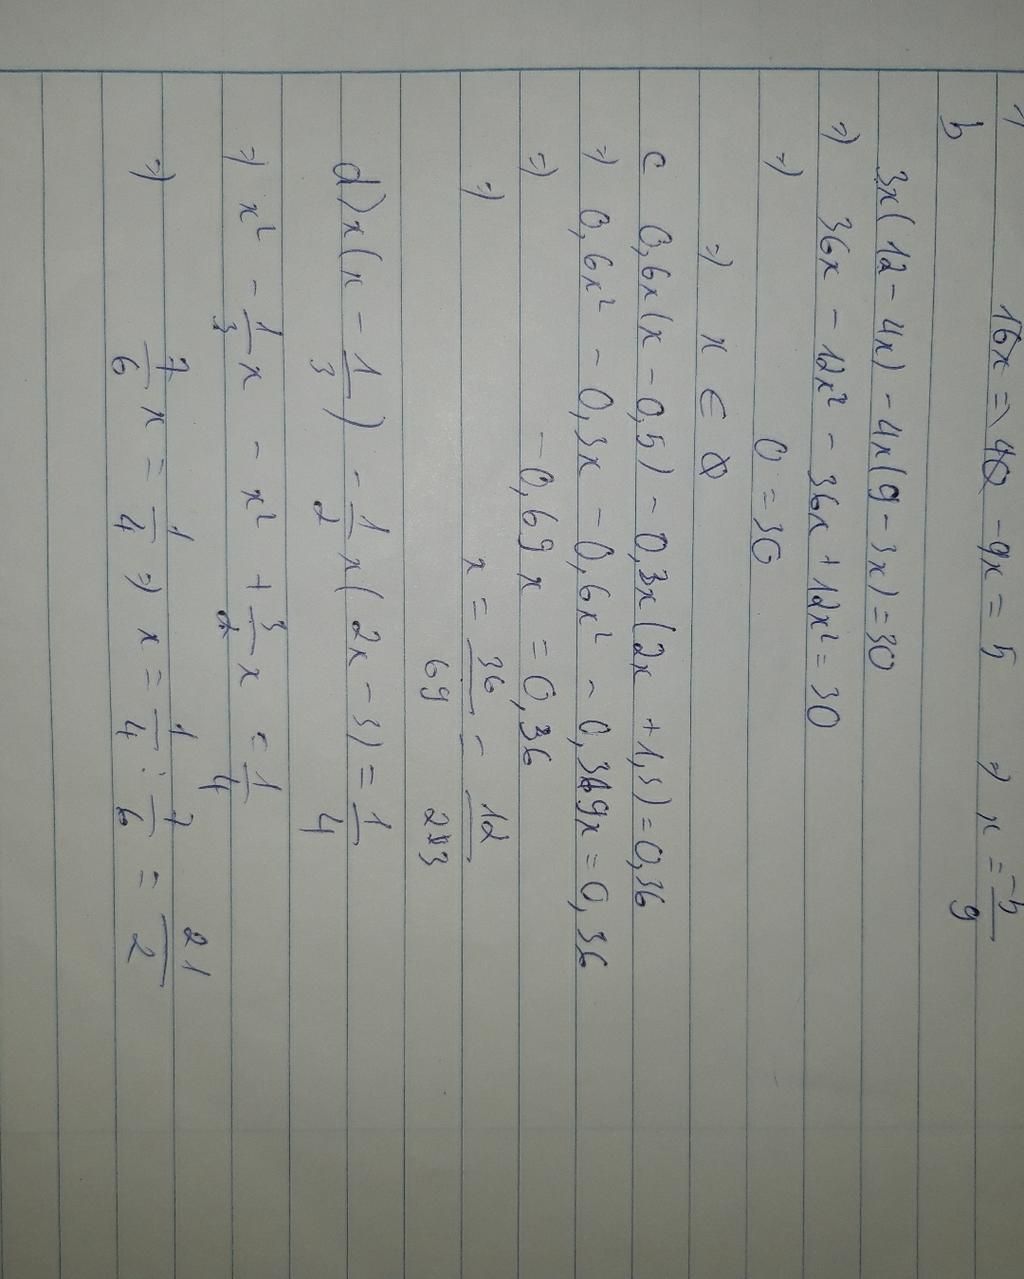 16x = 40 - 9x = 5 => x = -5/9
b
3x(12 - 4x) - 4x(9 - 3x) = 30
=> 36x - 12x² - 36x + 12x² = 30
=> 0 = 30
=> x ∈ ∅
c 0,6x(x - 0,5) - 0,3x(2x + 1,3) = 0,36
=> 0,6x² - 0,3x - 0,6x² - 0,39x = 0,36
=> - 0,69x = 0,36
=> x = 36/69 = 12/23
d) x(x - 1/3) - 1/2 x(2x - 3) = 1/4
=> x² - 1/3 x - x² + 3/2 x = 1/4
=> 7/6 x = 1/4 => x = 1/4 : 7/6 = 21/2